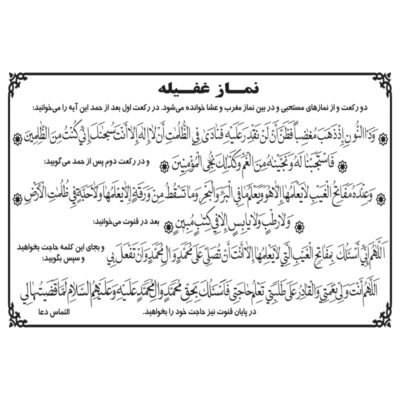 نماز غفیله
دو رکعت و از نمازهای مستحبی و در بین نماز مغرب و عشا خوانده می‌شود. در رکعت اول بعد از حمد این آیه را می‌خوانید:
وَذَا النُّونِ إِذْ ذَهَبَ مُغَضِبًا فَظَنَّ أَنْ لَنْ نَقْدِرَ عَلَيْهِ فَنَادَى فِي الظُّلُمَاتِ أَنْ لَا إِلَهَ إِلَّا أَنْتَ سُبْحَنَكَ إِنِّي كُنْتُ مِنَ الظَّلِمِينَ
فَاسْتَجَبْنَا لَهُ وَنَجَّيْنَهُ مِنَ الْغَمِّ وَكَذَلِكَ نُنْجِي الْمُؤْمِنِينَ و در رکعت دوم پس از حمد می‌گویید:
وَعِنْدَهُ مَفَاتِحُ الْغَيْبِ لَا يَعْلَمُهَا إِلَّا هُوَ وَيَعْلَمُ مَا فِي الْبَرِّ وَالْبَحْرِ وَمَا تَسْقُطُ مِنْ وَرَقَةٍ إِلَّا يَعْلَمُهَا وَلَا حَبَّةٍ فِي ظُلُمَاتِ الْأَرْضِ
وَلَا رَطْبٍ وَلَا يَابِسٍ إِلَّا فِي كِتَبٍ مُبِينٍ بعد در قنوت می‌خوانید:
اللَّهُمَّ إِنِّي أَسْئَلُكَ بِمَفَاتِحِ الْغَيْبِ الَّتِي لَا يَعْلَمُهَا إِلَّا أَنْتَ أَنْ تُصَلِّيَ عَلَى مُحَمَّدٍ وَآلِ مُحَمَّدٍ وَأَنْ تَفْعَلَ بِي و بجای این کلمه حاجت بخواهید و سپس بگویید:
اللَّهُمَّ أَنْتَ وَلِيُّ نِعْمَتِي وَالْقَادِرُ عَلَى طَلِبَتِي تَعْلَمُ حَاجَتِي فَأَسْئَلُكَ بِحَقِّ مُحَمَّدٍ وَآلِ مُحَمَّدٍ عَلَيْهِ وَعَلَيْهِمُ السَّلَامُ لَمَّا قَضَيْتَهَا لِي
در پایان قنوت نیز حاجت خود را بخواهید. التماس دعا